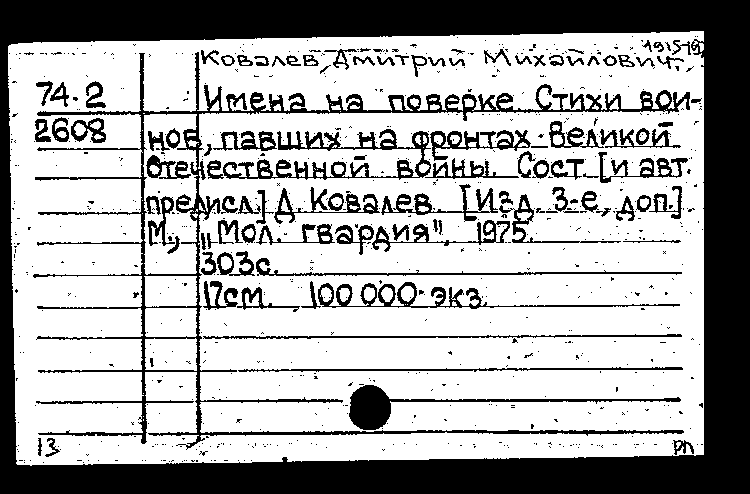 1915-19
Ковалев, Дмитрий Михайлович.
74.2 Имена на поверке Стихи вои-
2608 нов, павших на фронтах Великой
Отечественной войны. Сост. [и авт.
предисл.] Д. Ковалев. [Изд. 3-е, доп.]
М., „Мол. гвардия", 1975.
303с.
17см. 100 000 экз.
13 РП